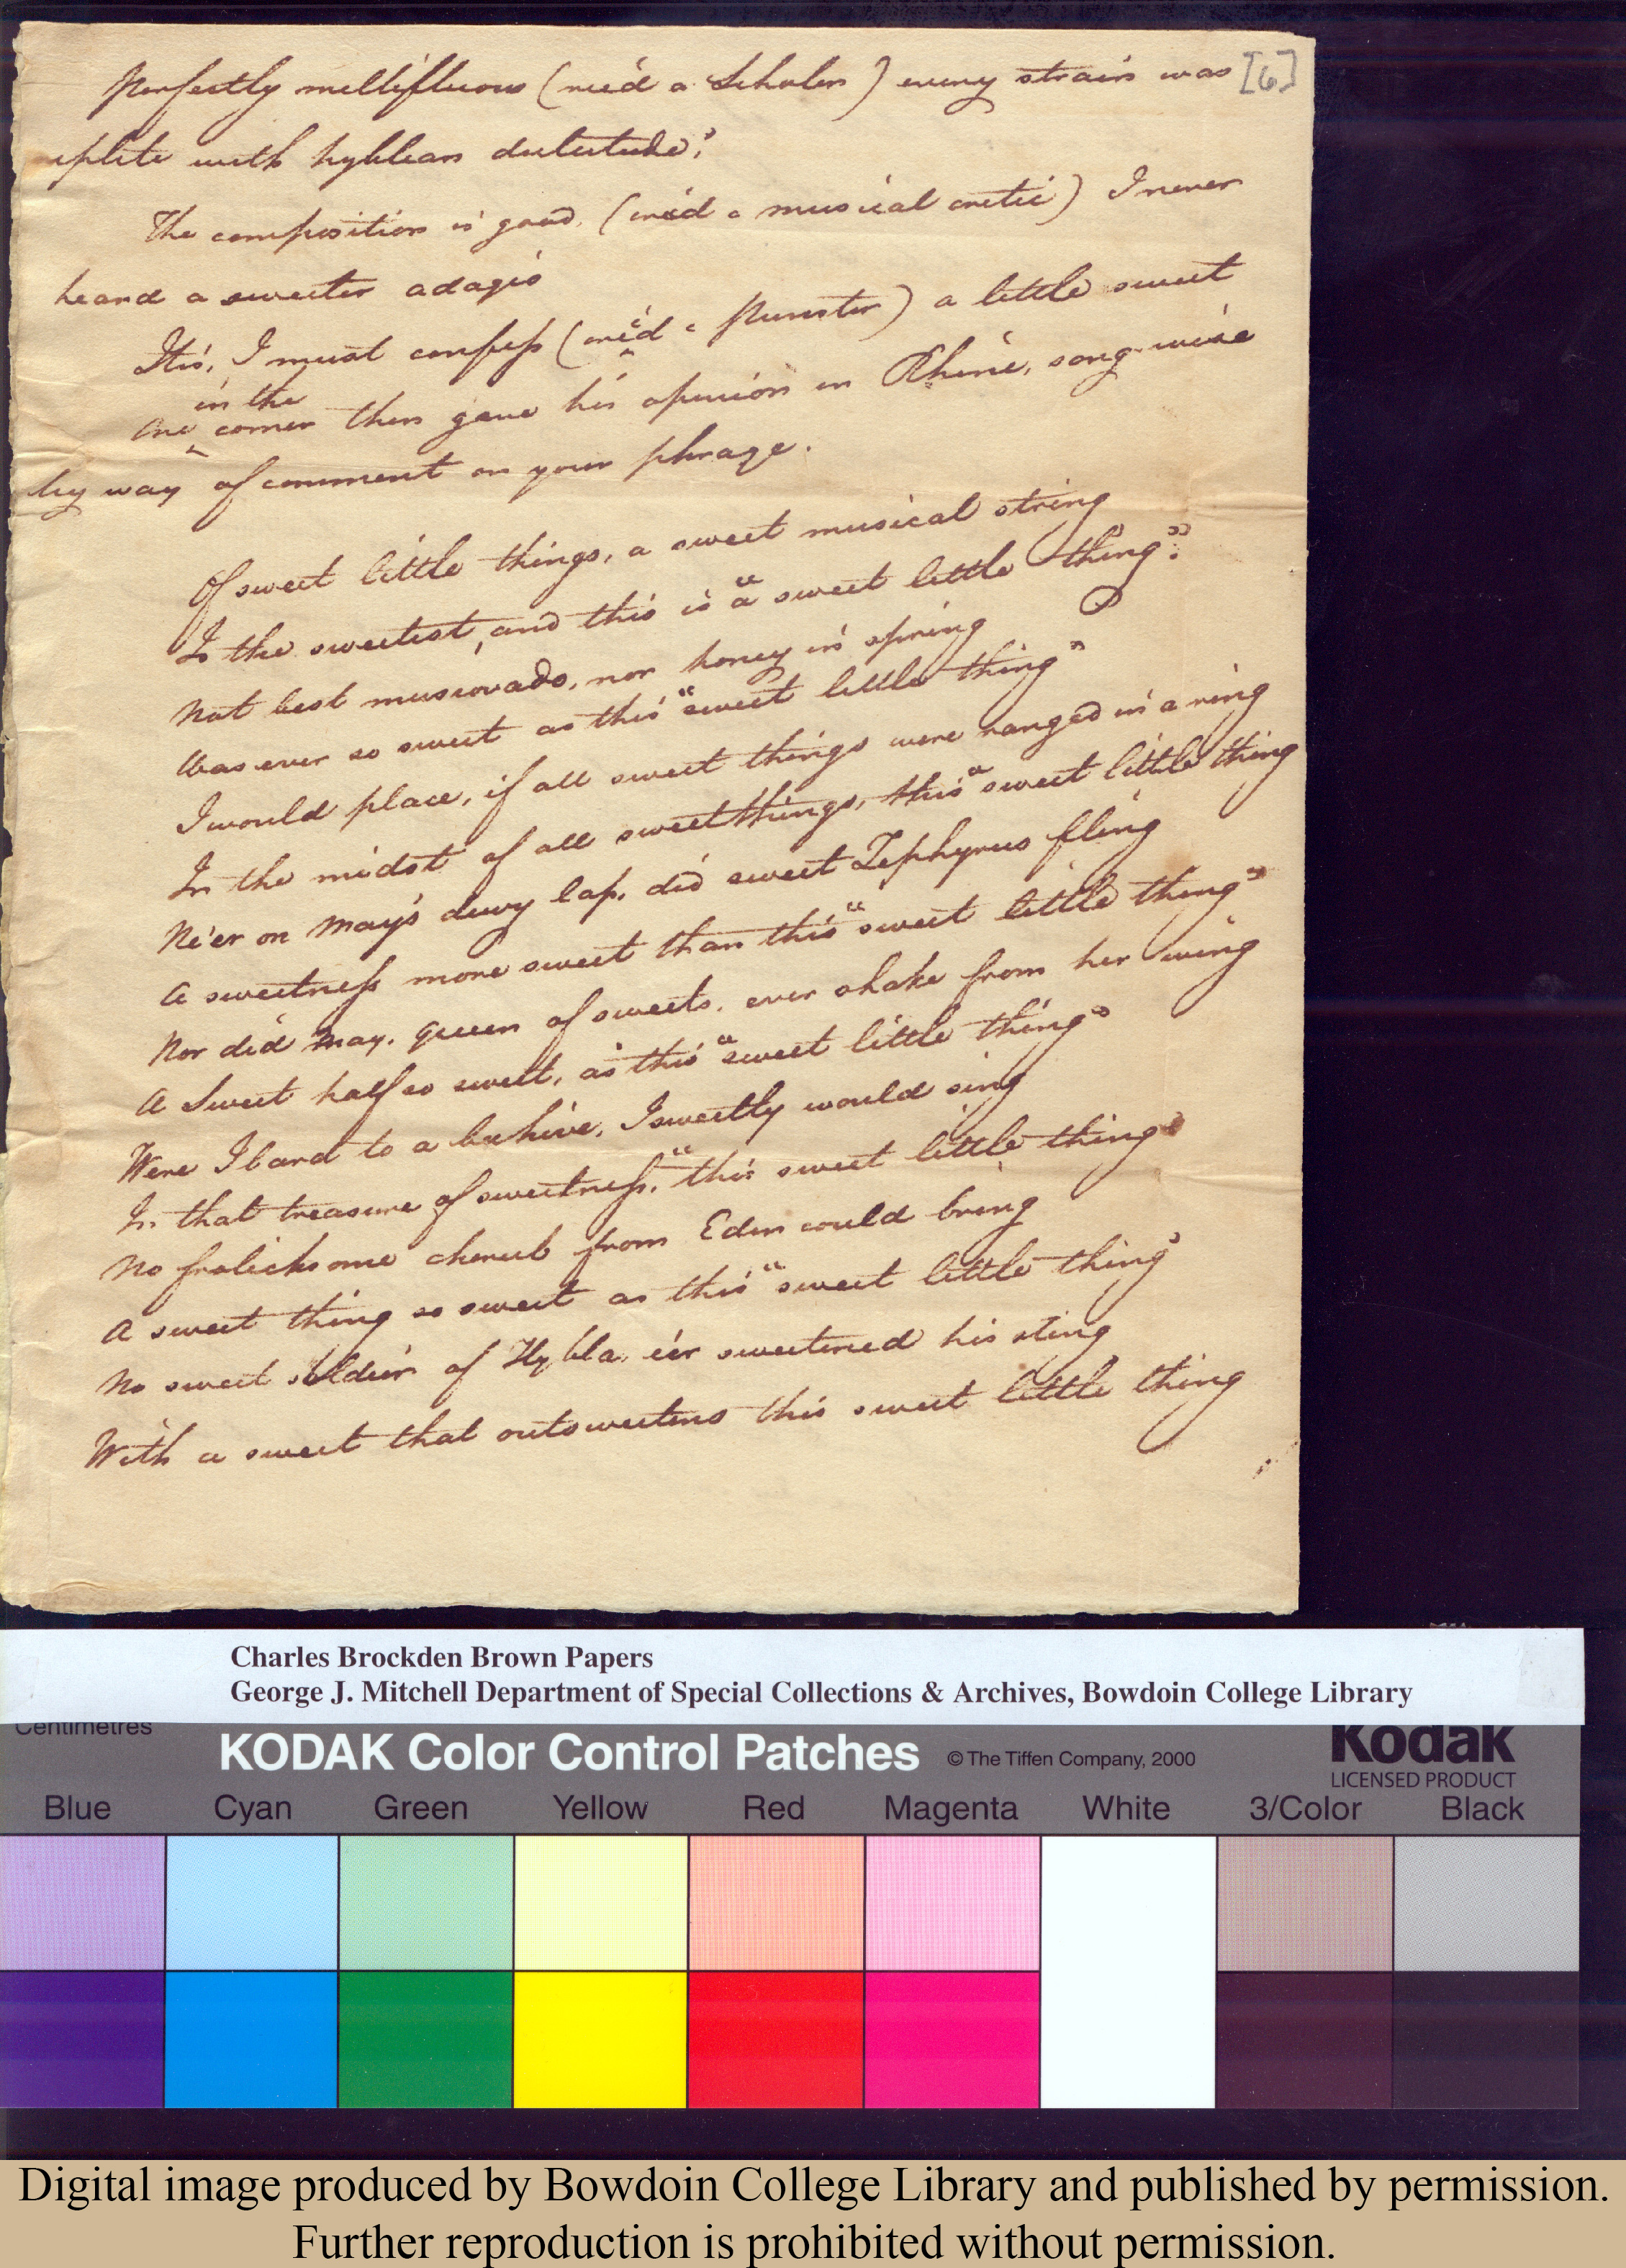 Perfectly mellifluous (cried a Scholar) every strain was [6]
eplete with hyblean dulcitude".
The composition is good, (cried a musical critic) I never
heard a sweeter adagio
Itis, I must confess (cried a Punster) a little sweet
in the
One ‸ corner then gave his opinion in Rhime, song-wise
by way of comment on your phrase.
Of sweet little things, a sweet musical string
Is the sweetest, and this is "a sweet little thing".
Not best muscovado, nor honey in spring
Was ever so sweet as this "sweet little thing"
I would place, if all sweet things were ranged in a ring
In the midst of all sweet things, this "sweet little thing
Ne'er on May's dewy lap, did sweet Zephyrus fling
A sweetness more sweet than this "sweet little thing"
Nor did May, queen of sweets, ever shake from her wing
A Sweet half so sweet, as this "sweet little thing"
Were I bard to a beehive, I sweetly would sing
In that treasure of sweetness, "this sweet little thing"
No frolicksome cherub from Eden could bring
A sweet thing so sweet as this "sweet little thing"
No sweet soldier of Hybla, e'er sweetened his sting
With a sweet that outsweetens this sweet little thing
Charles Brockden Brown Papers
George J. Mitchell Department of Special Collections & Archives, Bowdoin College Library
Centimetres
KODAK Color Control Patches © The Tiffen Company, 2000 Kodak
LICENSED PRODUCT
Blue Cyan Green Yellow Red Magenta White 3/Color Black
Digital image produced by Bowdoin College Library and published by permission.
Further reproduction is prohibited without permission.